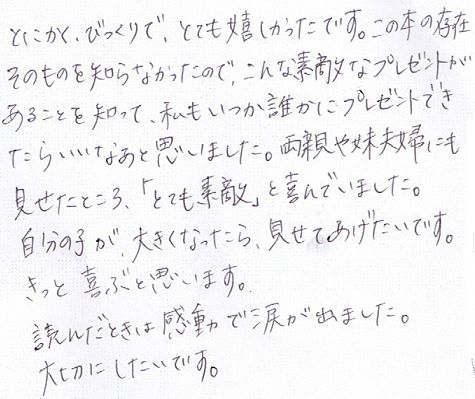 とにかく、びっくりで、とても嬉しかったです。この本の存在
そのものを知らなかったので、こんな素敵なプレゼントが
あることを知って、私もいつか誰かにプレゼントでき
たらいいなあと思いました。両親や妹夫婦にも
見せたところ、「とても素敵」と喜んでいました。
自分の子が、大きくなったら、見せてあげたいです。
きっと喜ぶと思います。
読んだときは感動で涙が出ました。
大切にしたいです。